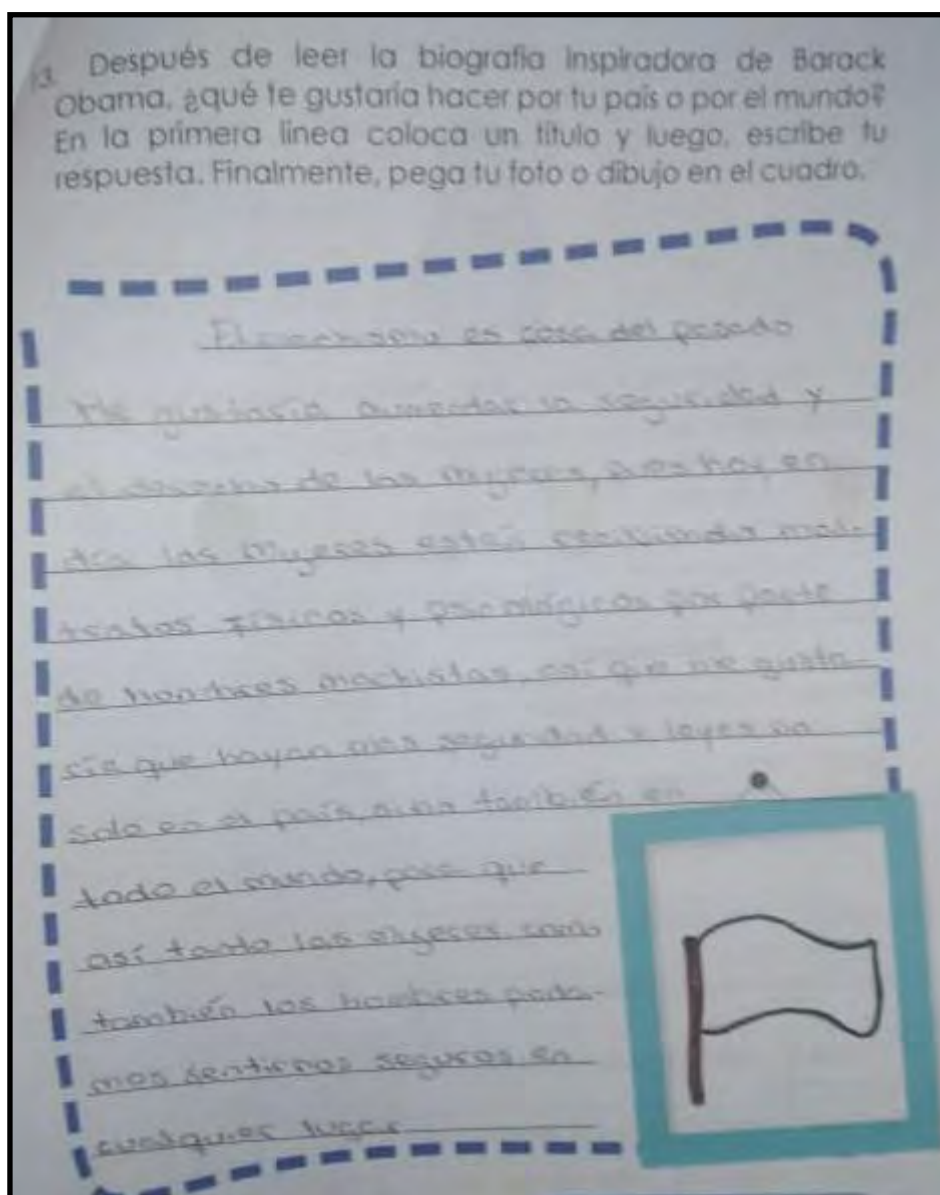 3. Después de leer la biografía inspiradora de Barack
Obama, ¿qué te gustaría hacer por tu país o por el mundo?
En la primera línea coloca un título y luego, escribe tu
respuesta. Finalmente, pega tu foto o dibujo en el cuadro.
El machismo es cosa del pasado
Me gustaría aumentar la seguridad y
el derecho de las mujeres, pues hoy en
día las mujeres están recibiendo mal-
tratos físicos y psicológicos por parte
de hombres machistas, así que me gusta-
ría que hayan más seguridad y leyes no
solo en el país, sino también en
todo el mundo, para que
así tanto las mujeres como
también los hombres poda-
mos sentirnos seguros en
cualquier lugar